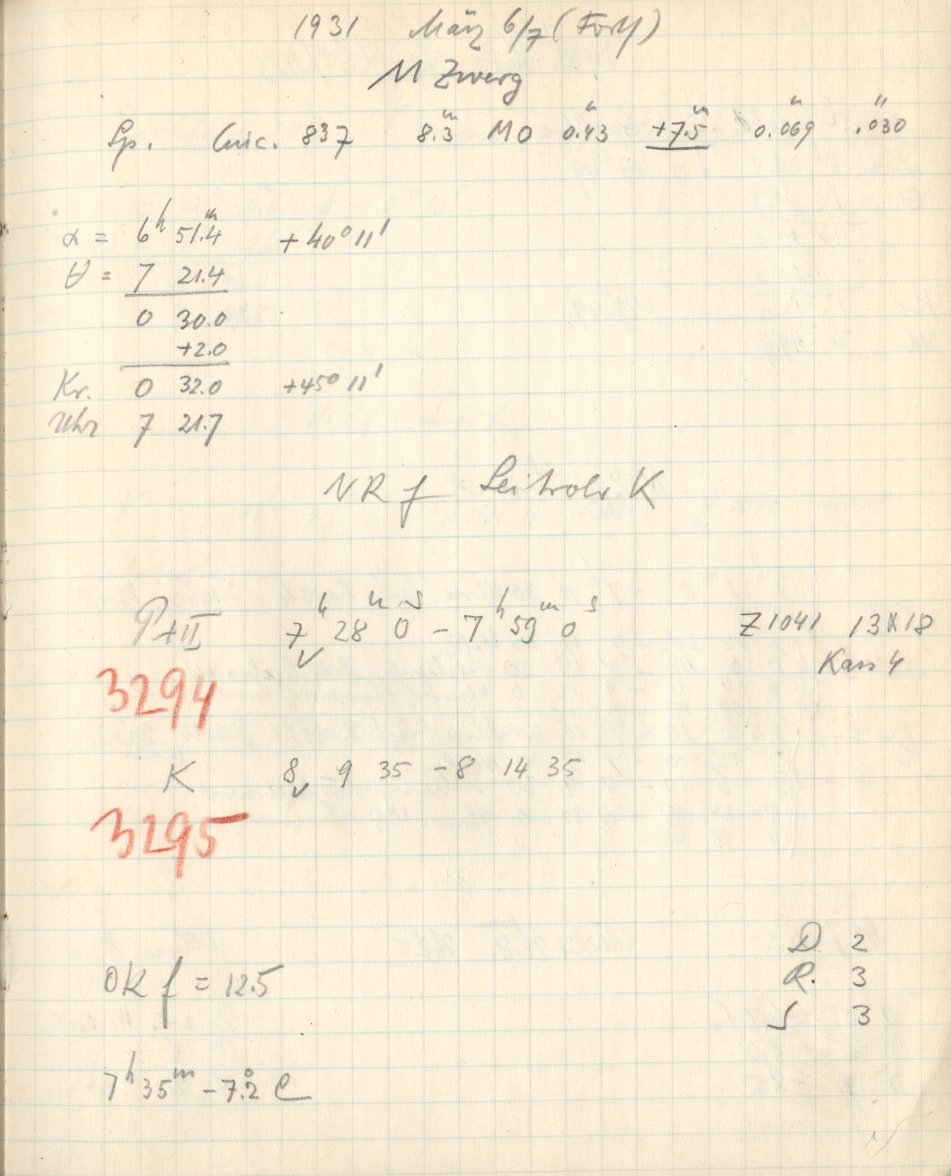 1931 März 6/7 (Forts)
M Zwerg
Sp. Cinc. 837 8.3ᵐ M0 0.″43 +7.5ᵐ 0.″069 .″030
α = 6ʰ 51.4ᵐ +40° 11'
θ = 7 21.4
0 30.0
+2.0
Kr. 0 32.0 +45° 11'
Uhr 7 21.7
NR f Leitrohr K
P+II 7ʰ 28ᵐ 0ˢ – 7ʰ 59ᵐ 0ˢ Z 1041 13X18
Kass 4
3294
K 8 9 35 – 8 14 35
3295
D 2
OK f = 12.5 R. 3
S 3
7ʰ 35ᵐ – 7.°2 C